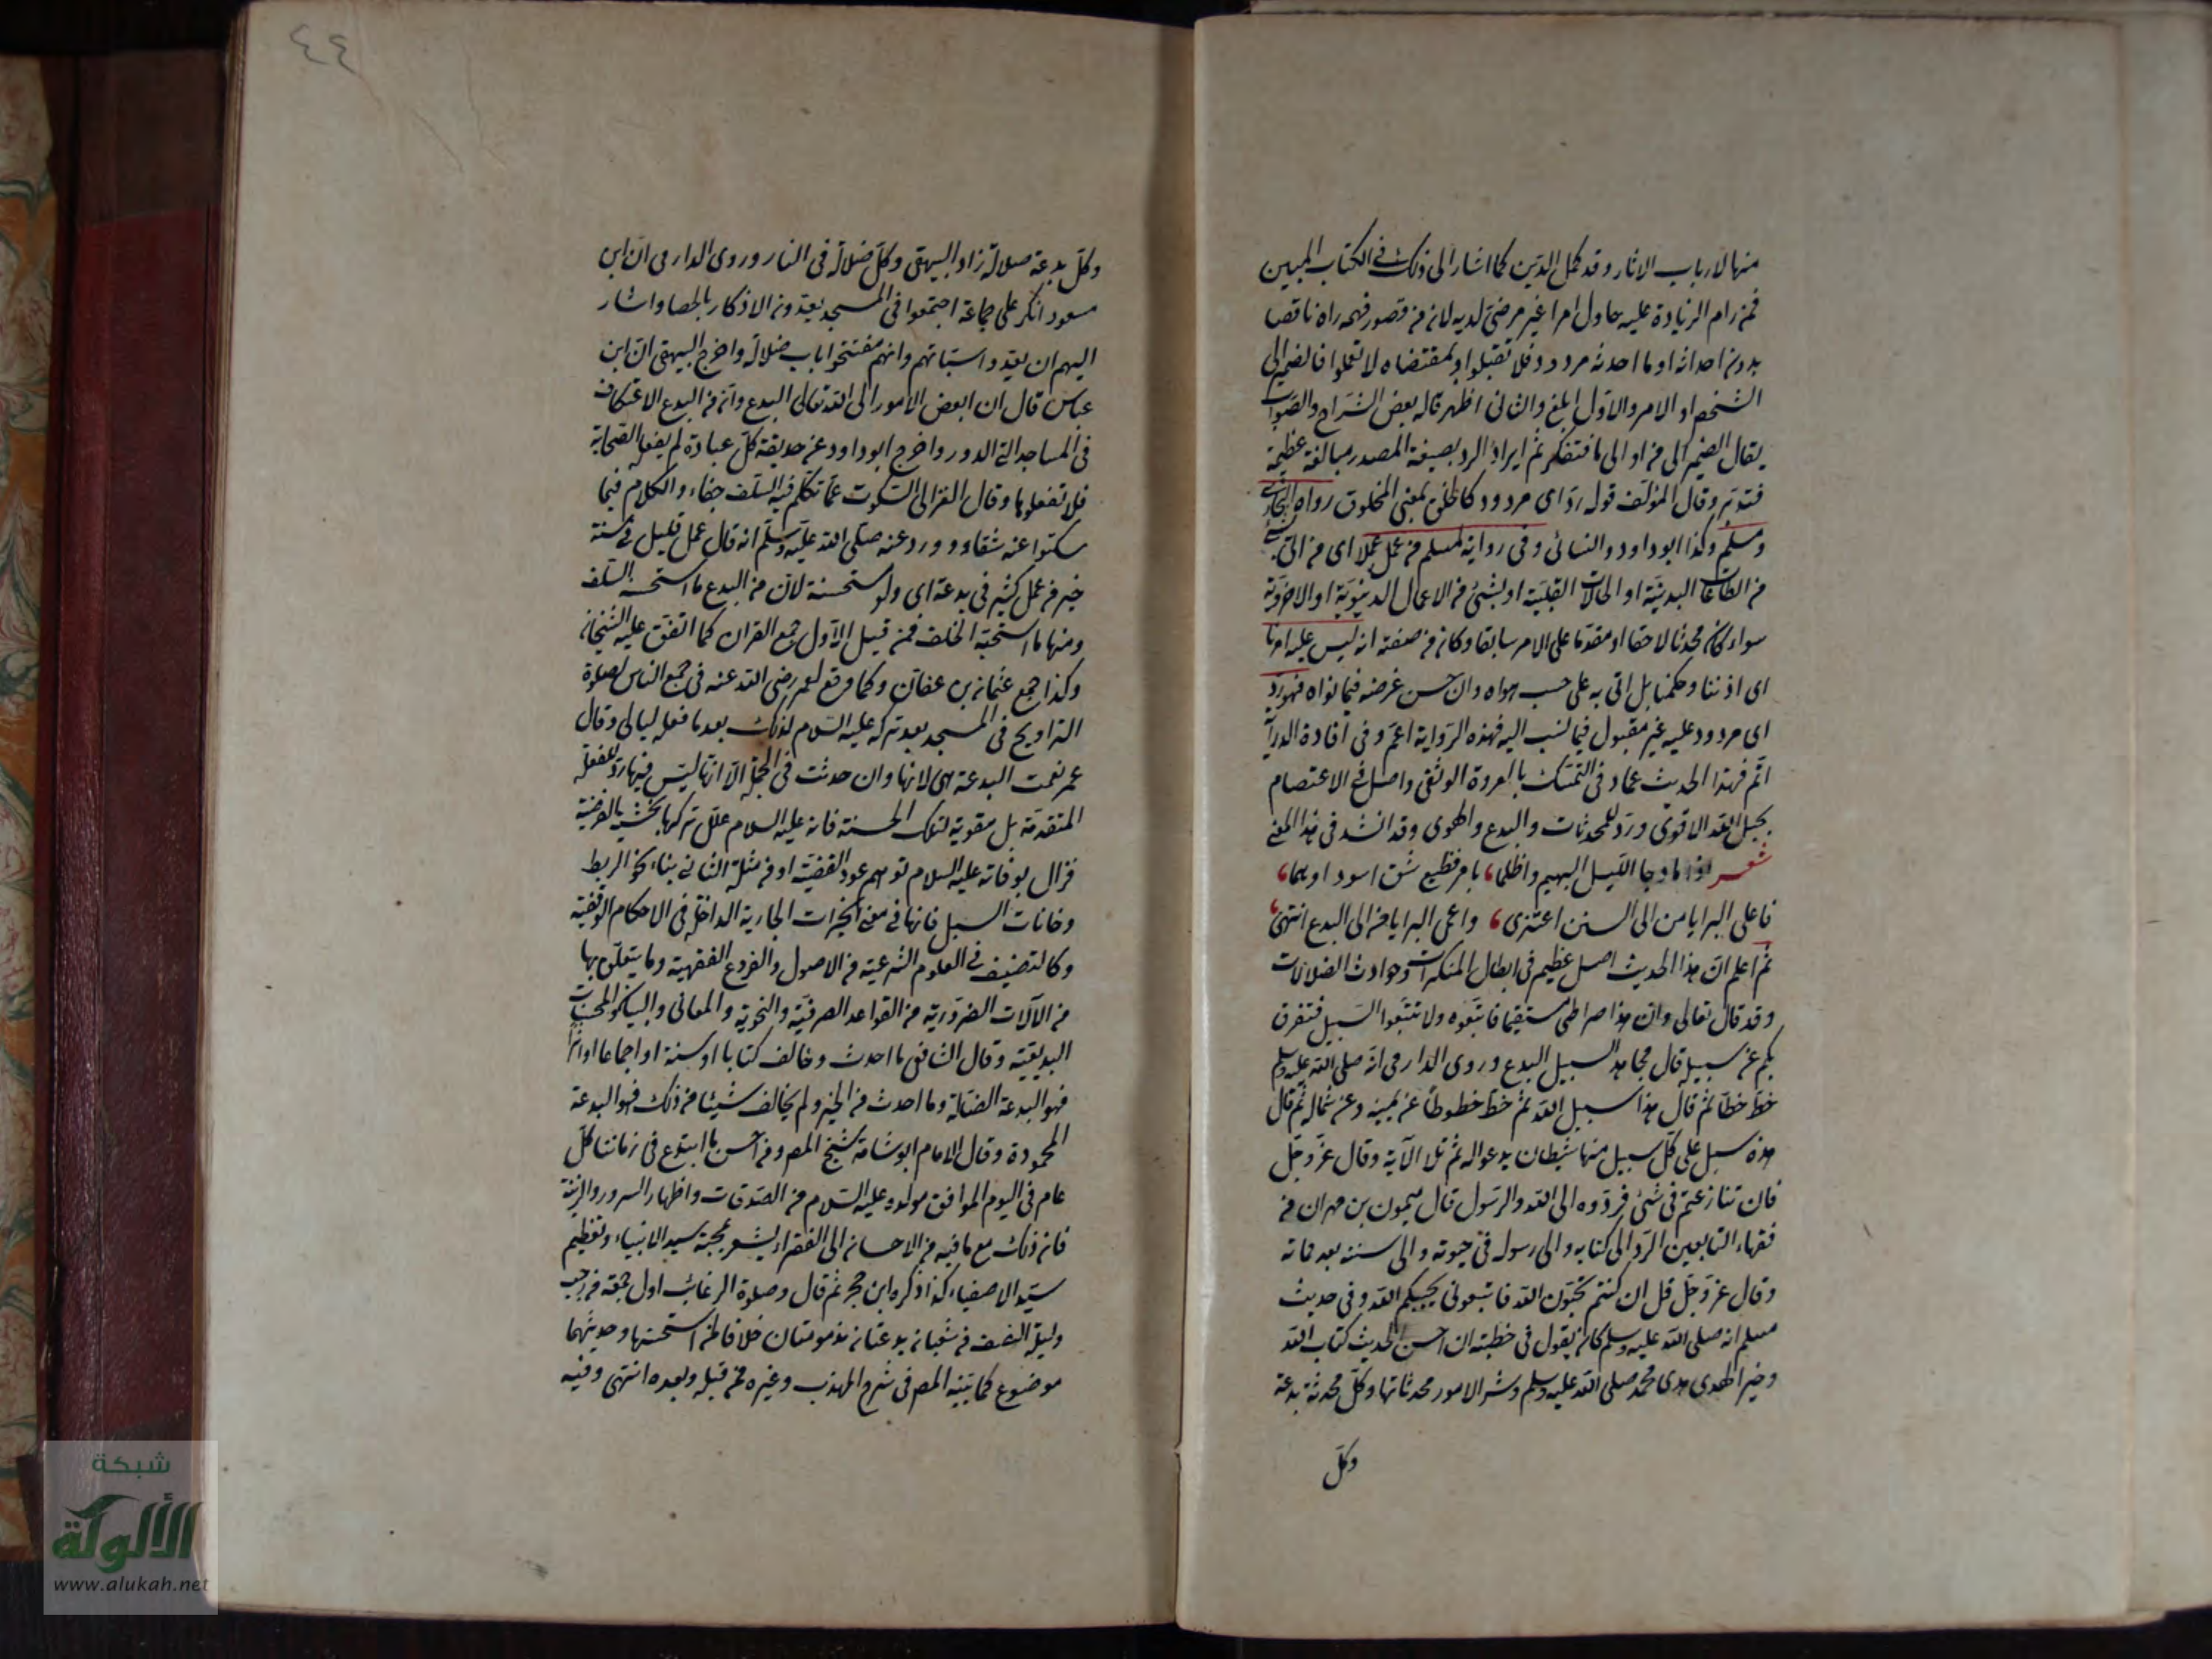 منها لارباب الاثار وقد كمل الدين كما اشار الى ذلك في الكتاب المبين
فمن رام الزيادة عليه حاول امرا غير مرضى لديه لانه من قصور فهمه راه ناقصا
بدون احداثه او ما احدثه مردود فلا تقبلوا وبمقتضاه لا تعملوا فالضمير الى
الشخص او الامر والاول ابلغ والثانى اظهر قاله بعض الشراح والصواب
يقال الضمير الى من او الى ما فتفكر ثم ايراد الرد بصيغة المصدر مبالغة عظيمة
فتدبر وقال المؤلف قوله رد اى مردود كالخلق بمعنى المخلوق رواه البخارى
ومسلم وكذا ابو داود والنسائى وفى رواية لمسلم من عمل عملا اى من اتى بشئ
من الطاعات البدنية او الحالات القلبية او بشئ من الاعمال الدنيوية او الاخروية
سواء كان محدثا لاحقا او مقدما على الامر سابقا وكان من صفته انه ليس عليه امرنا
اى اذننا وحكمنا بل اتى به على حسب هواه وان حسن غرضه فيما نواه فهو رد
اى مردود عليه غير مقبول فيما نسب اليه فهذه الرواية اعم وفى افادة الدراية
اتم فهذا الحديث عماد فى التمسك بالعروة الوثقى واصل فى الاعتصام
بحبل الله الاقوى ورد للمحدثات والبدع والهوى وقد انشد فى هذا المعنى
شعر اذا ما دجا الليل البهيم واظلما، بامر فظيع شق اسود ادهما،
فاعلى البرايا من الى السنن اعتزى، واعمى البرايا من الى البدع انتمى،
ثم اعلم ان هذا الحديث اصل عظيم فى ابطال المنكرات وحوادث الضلالات
وقد قال تعالى وان هذا صراطى مستقيما فاتبعوه ولا تتبعوا السبل فتفرق
بكم عن سبيله قال مجاهد السبيل البدع وروى الدارمى انه صلى الله عليه وسلم
خط خطا ثم قال هذا سبيل الله ثم خط خطوطا عن يمينه وعن شماله ثم قال
هذه سبل على كل سبيل منها شيطان يدعو اليه ثم تلا الآية وقال عز وجل
فان تنازعتم فى شئ فردوه الى الله والرسول قال ميمون بن مهران من
فقهاء التابعين الرد الى كتابه والى رسوله فى حيوته والى سنته بعد مماته
وقال عز وجل قل ان كنتم تحبون الله فاتبعونى يحببكم الله وفى حديث
مسلم انه صلى الله عليه وسلم كان يقول فى خطبته ان احسن الحديث كتاب الله
وخير الهدى هدى محمد صلى الله عليه وسلم وشر الامور محدثاتها وكل محدثة بدعة
وكل
٤٤
وكل بدعة ضلالة زاد البيهقى وكل ضلالة فى النار وروى الدارمى ان ابن
مسعود انكر على جماعة اجتمعوا فى المسجد يعدون الاذكار بالحصا واشار
اليهم ان يعدوا سيئاتهم وانهم مفتتحوا باب ضلالة واخرج البيهقى ان ابن
عباس قال ان ابغض الامور الى الله تعالى البدع وان من البدع الاعتكاف
فى المساجد التى الدور واخرج ابو داود عن حذيفة كل عبادة لم يفعلها الصحابة
فلا تفعلوها وقال الغزالى السكوت عما تكلم فيه السلف جفاء والكلام فيما
سكتوا عنه شقاء وورد عنه صلى الله عليه وسلم انه قال عمل قليل فى سنة
خير من عمل كثير فى بدعة اى ولو مستحسنة لان من البدع ما استحسنه السلف
ومنها ما استحبه الخلف فمن قبيل الاول جمع القران كما اتفق عليه الشيخان
وكذا جمع عثمان بن عفان وكما وقع لعمر رضى الله عنه فى جمع الناس لصلوة
التراويح فى المسجد بعد تركه عليه السلام لذلك بعد ما فعله ليالى وقال
عمر نعمت البدعة هى لانها وان حدثت فى الجملة الا انها ليس فيها رد للفعلة
المتقدمة بل مقوية لتلك الحسنة فانه عليه السلام علل تركها بخشية الفرضية
فزال بوفاته عليه السلام توهم عود القضية او من مثلة الثانى بناء نحو الربط
وخانات السبل فانها فى معنى الخيرات الجارية الداخلة فى الاحكام الوقفية
وكالتصنيف فى العلوم الشرعية من الاصول والفروع الفقهية وما يتعلق بها
من الآلات الضرورية من القواعد الصرفية والنحوية والمعانى والبيان والمحسنات
البديعية وقال الشافعى ما احدث وخالف كتابا او سنة او اجماعا او اثرا
فهو البدعة الضالة وما احدث من الخير ولم يخالف شيئا من ذلك فهو البدعة
المحمودة وقال الامام ابو شامة شيخ المص ومن احسن ما ابتدع فى زماننا كل
عام فى اليوم الموافق مولده عليه السلام من الصدقات واظهار السرور والزينة
فان ذلك مع ما فيه من الاحسان الى الفقراء يشعر بمحبة سيد الانبياء وتعظيم
سيد الاصفياء كذا ذكره ابن حجر ثم قال وصلوة الرغائب اول جمعة من رجب
وليلة النصف من شعبان بدعتان مذمومتان خلافا لمن استحسنها وحديثهما
موضوع كما بينه المص فى شرح المهذب وغيره ممن قبله وبعده انتهى وفيه
شبكة
الألوكة
www.alukah.net